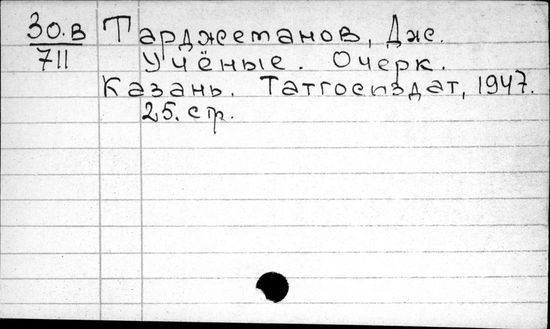 30.в Тарджеманов, Дж.
711 Учёные. Очерк.
Казань. Татгосиздат, 1947.
25. стр.